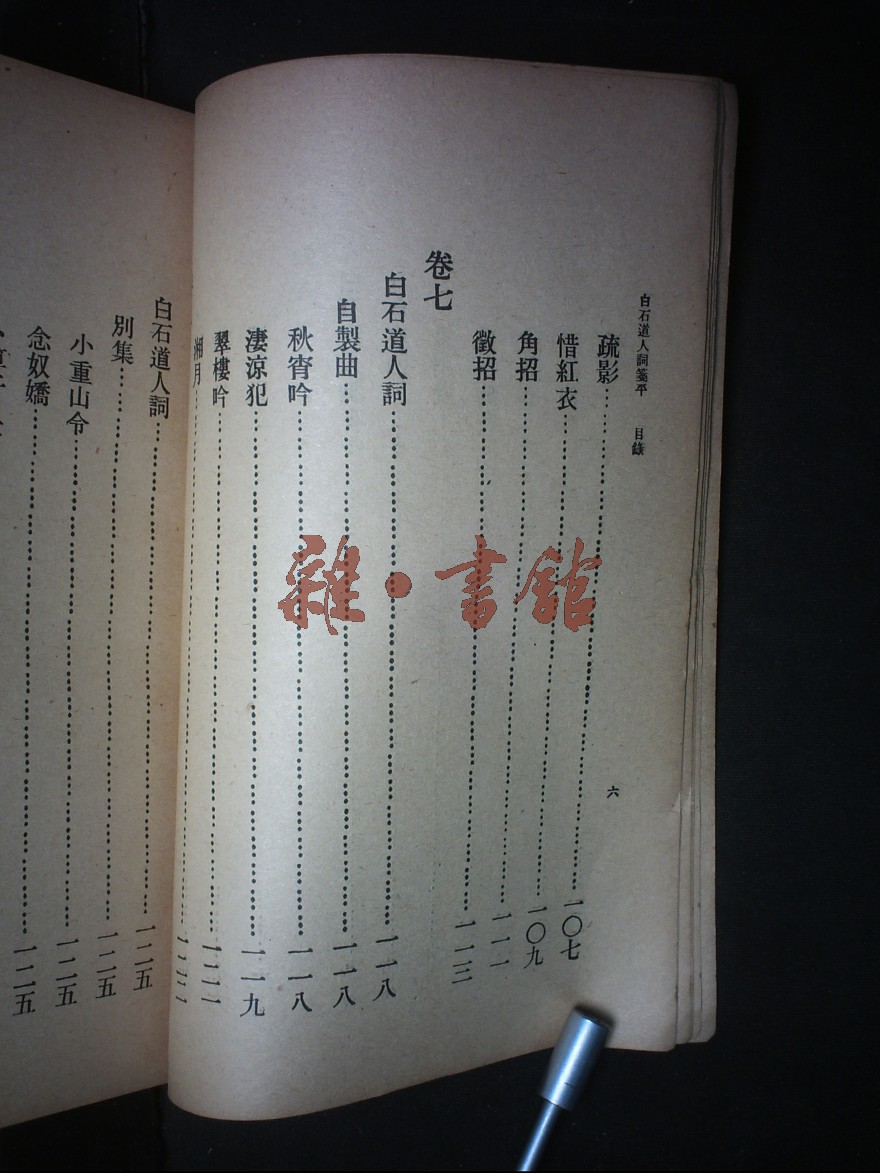 白石道人詞箋平 目錄 六
疏影……一〇七
惜紅衣……一〇九
角招……一一一
徵招……一一三
卷七
白石道人詞……一一八
自製曲……一一八
秋宵吟……一一八
淒涼犯……一一九
翠樓吟……一二一
湘月……一二二
白石道人詞……一二五
別集……一二五
小重山令……一二五
念奴嬌……一二五
雜·書館